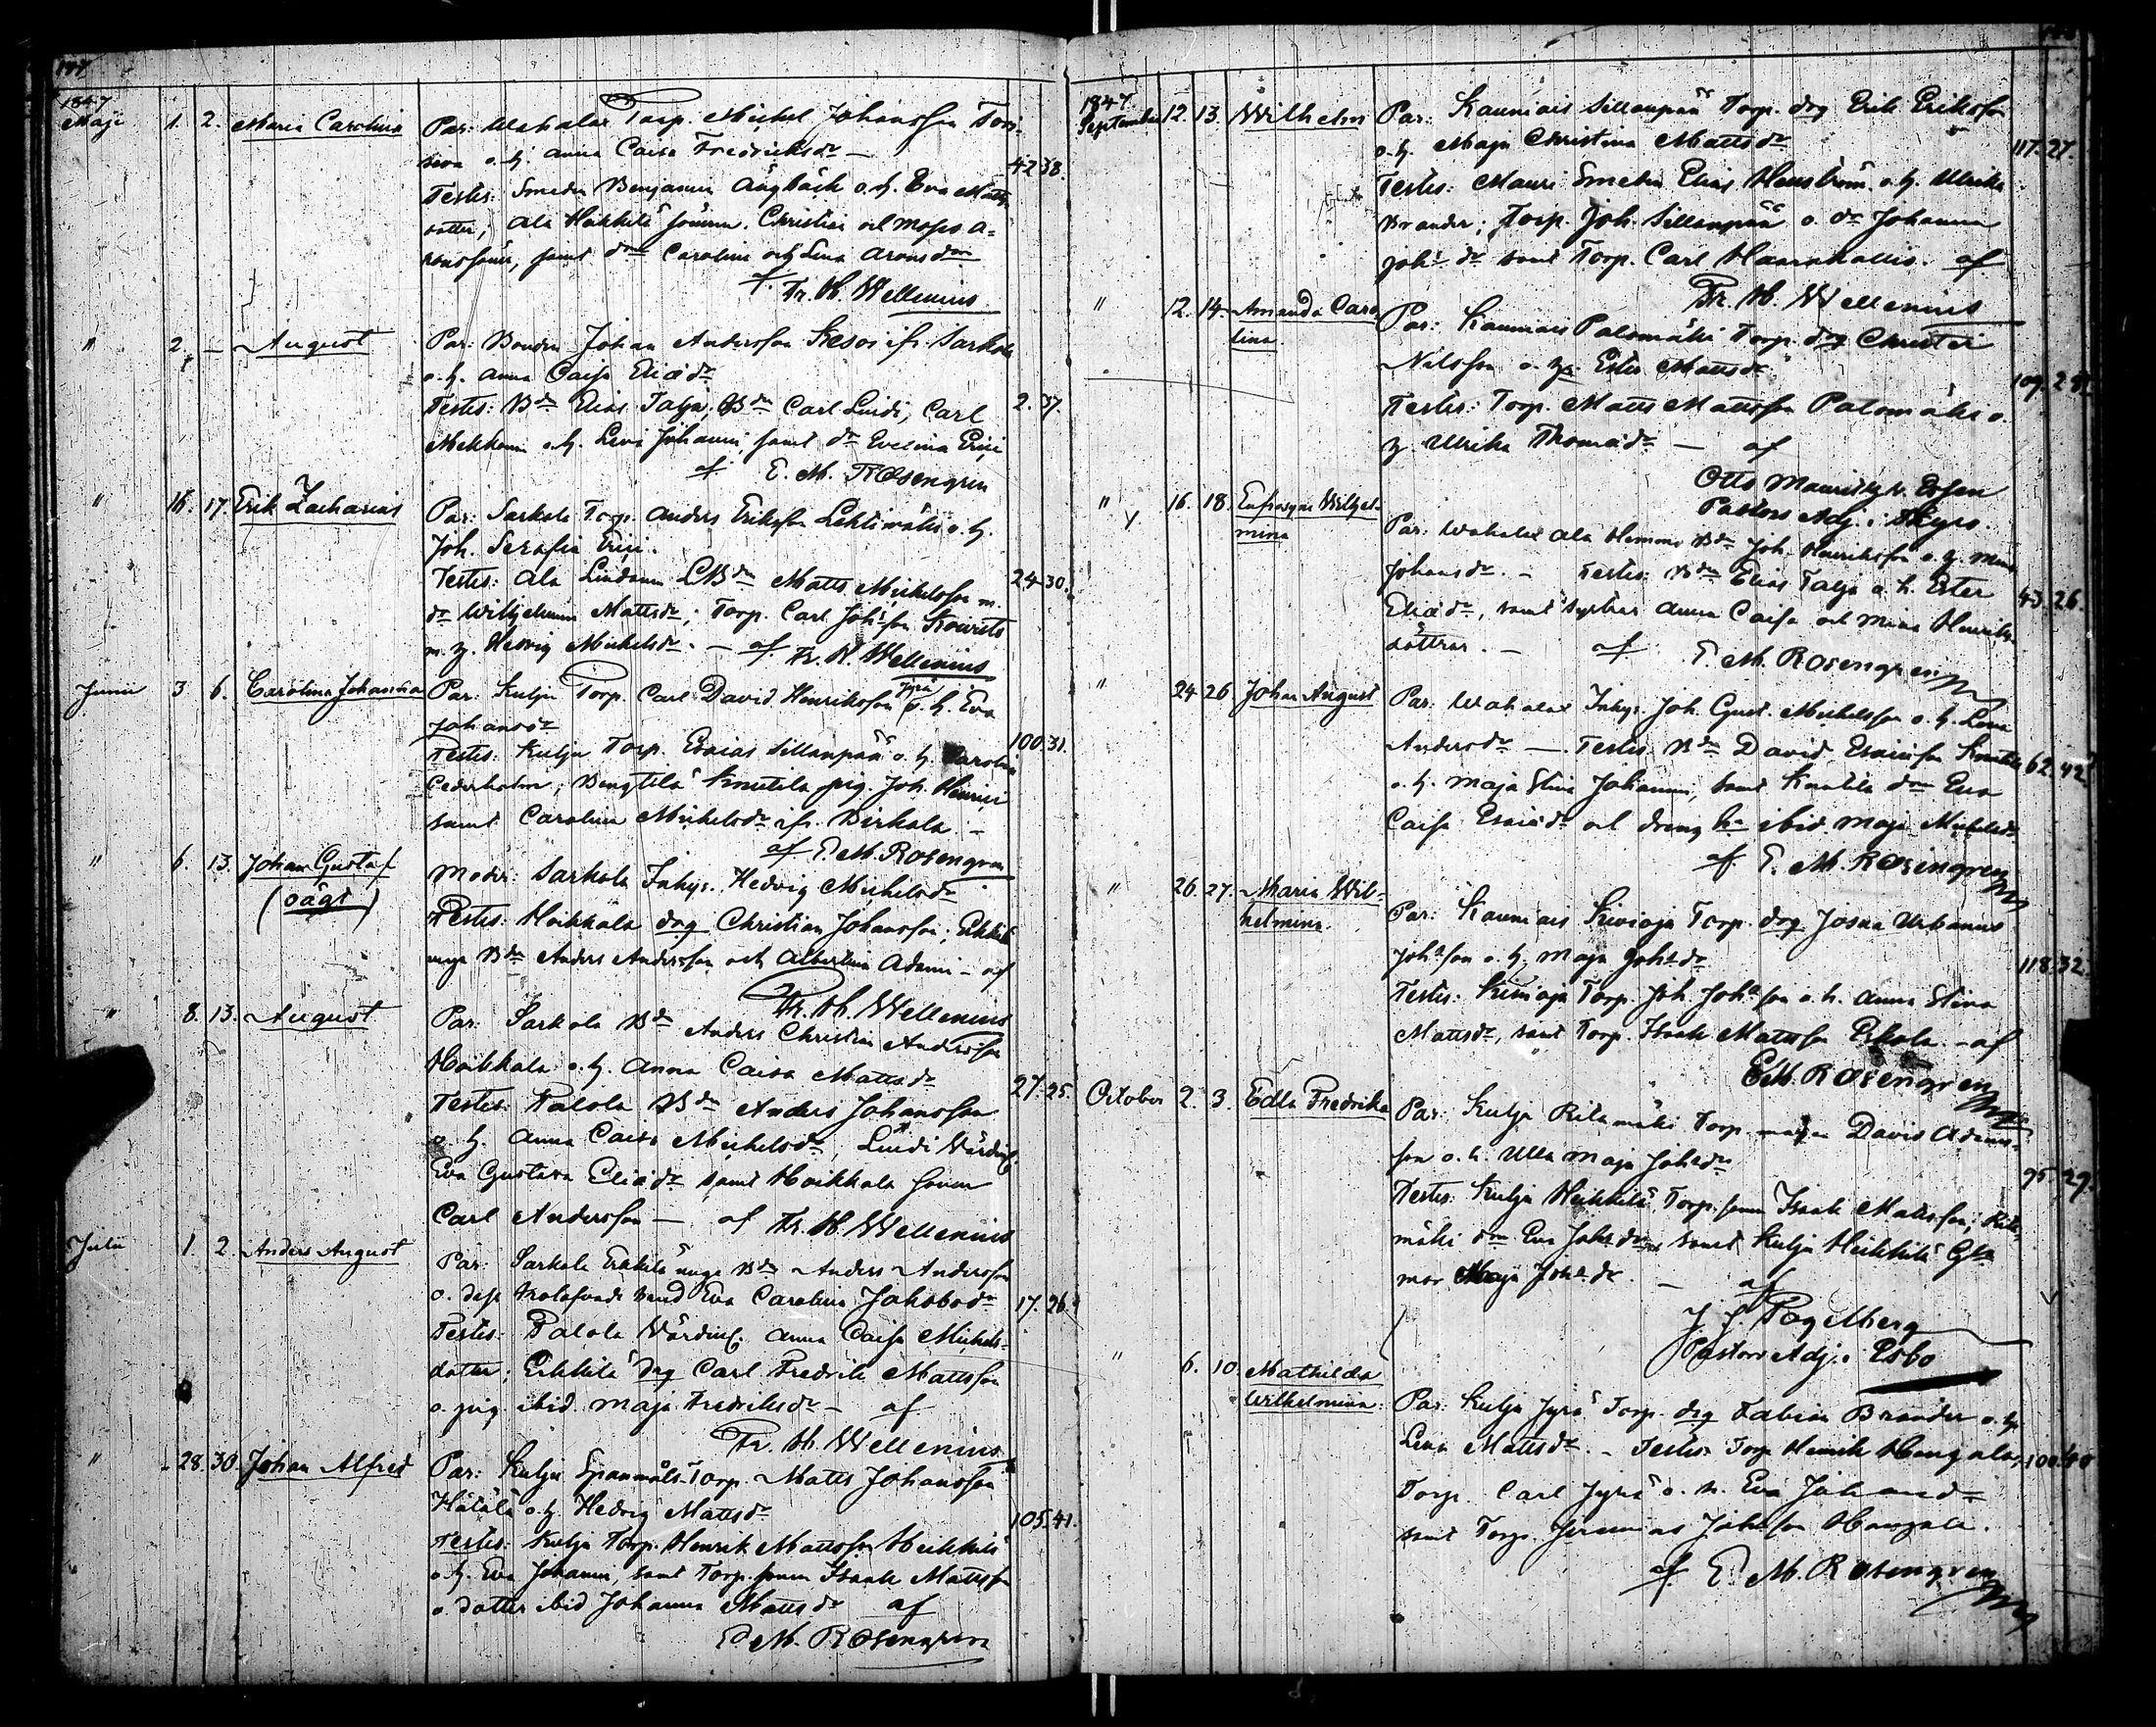 144
1847
Maji 1. 2. Maria Carolina Par: Wahalax Torp. Michel Johansson
o. h. Anna Caisa Fredriksdr — 42 38.
Testes: Smeden Benjamin o. h. Eva Matts
dotter; Ala Heikkilä sönerne Christian och
samt drne Carolina och Lena Aronsdrr
af Fr. H. Wellenius
" 2. — August Par: Bonden Johan Andersson Kesos ifr. Sarkola
o. h. Anna Caisa Eliædr 2. 37.
Testes: Bdn Elias Talja, Bdn Carl Lindi, Carl
o. h. Lena Johanni, samt dr Evelina Erici
af E. M. Rosengren
" 16. 17. Erik Zacharias Par: Sarkola Torp. Anders Eriksson Lehtimäki o. h.
Joh. Serafia Erici.
Testes: Ala Bdn Matts Michelsson m. 24-30.
dr Wilhelmina Mattsdr; Torp. Carl Joh:son
m. h. Hedvig Michelsdr. — af Fr. H. Wellenius
Junii 3 6. Carolina Johanna Par: Kulju Torp. Carl David Henriksson Jyrä o. h. Eva
Johansdr 100.31.
Testes: Kulju Torp. Esaias Sillanpää o. h. Carolina
Cederholm; Bengtilä Knutila pig. Joh. Henrici
samt Carolina Michelsdr ifr. Birkala. —
af E. M. Rosengren
" 6. 13. Johan Gustaf Moder: Sarkola Inhys. Hedvig Michelsdr
(oägt) Testes: Hoikkala drg Christian Johansson; Erkkilä
unge Bdn Anders Andersson och Albertina Adami — af
Fr. H. Wellenius
" 8. 13. August Par: Sarkola Bdn Anders Christian Andersson
Hoikkala o. h. Anna Caisa Mattsdr 27. 25.
Testes: Palola Bdn Anders Johansson
o. h. Anna Caisa Michelsdr, Lindi Värdinf.
Eva Gustava Eliædr samt Hoikkala sonen
Carl Andersson — af Fr. H. Wellenius
Julii 1. 2. Anders August Par: Sarkola Erkkilä unge Bdn Anders Andersson
o. dess trolofvade Eva Carolina Jakobsdr 17. 26.
Testes: Palola Värdinf. Anna Caisa Michels-
dotter; Erkkilä drg Carl Fredrik Mattsson
o. pig. ibid. Maja Fredriksdr — af
Fr. H. Wellenius
" 28. 30. Johan Alfred Par: Kulju Spanmåls Torp. Matts Johansson
Hätälä o. h. Hedvig Mattsdr 105.41.
Testes: Kulju Torp. Henrik Mattsson Heikkilä
o. h. Eva Johanni, samt Torp. sonen Isaak Mattsson
o. dotter ibid Johanna Mattsdr af
E. M. Rosengren
1847.
September 12. 13. Wilhelm Par: Kauniais Sillanpää Torp. drg Erik Eriksson
o. h. Maja Christina Mattsdr 117. 27.
Testes: Mauri Smeden Elias Hellström o. h. Ulrika
Brander; Torp. Joh. Sillanpää o. dr Johanna
Joh:s dr samt Torp. Carl Haarakallio. af
Fr. H. Wellenius
" 12. 14. Amanda Caro- Par: Kauniais Palomäki Torp. drg Christer
lina. Nilsson o. h. Ester Mattsdr 109. 25.
Testes: Torp. Matts Mattsson Palomäki o.
h. Ulrika Thomædr — af
Otto Mauritz v. Essen
Pastors Adj. i Kyro.
" 16. 18. Eufrosyne Wilhel- Par: Wahalax Ala Hemmo Bdn Joh. Henriksson o. h. Mina
mina Johansdr. — Testes: Bdn Elias Talja o. h. Ester 43. 26.
Eliædr, samt systrar Anna Caisa och Mina Henriks
döttrar. — af E. M. Rosengren
" 24 26. Johan August Par: Wahalax Inhys. Joh. Gust. Michelsson o. h. Lena
Andersdr — Testes Bdn David Esaiæsson Knuttila 62. 42.
o. h. Maja Stina Johanni, samt Knutila drn Eva
Caisa Esaiædr och dreng ibid. Maja Michelsdr
af E. M. Rosengren
" 26. 27. Maria Wil- Par: Kauniais Kivioja Torp. drg Josua Urbanus
helmina. Joh:sson o. h. Maja Joh:dr 118. 32.
Testes: Kivioja Torp. Joh. Joh:sson o. h. Anna Stina
Mattsdr, samt Torp. Isaak Mattsson Eskola. — af
E. M. Rosengren
October 2. 3. Edla Fredrika Par: Kulju Ritamäki Torp. mågen David Adams-
son o. h. Ulla Maja Joh:dr 95 29.
Testes: Kulju Heikkilä Torp. sonen Isaak Mattsson; Rita-
mäki drn Eva Joh:dr samt Kulju Heikkilä
mor Maja Joh:dr. — af
J. J. Fogelberg
Pastors Adj. i Esbo
" 6. 10. Mathilda Par: Kulju Jyrä Torp. drg Fabian Brander o. h.
Wilhelmina. Lena Mattsdr. — Testes Torp Henrik Hangala, 100.40
Torp. Carl Jyrä o. h. Eva Johansdr
samt Torp. Jeremias Joh:sson Hangala.
af E. M. Rosengren